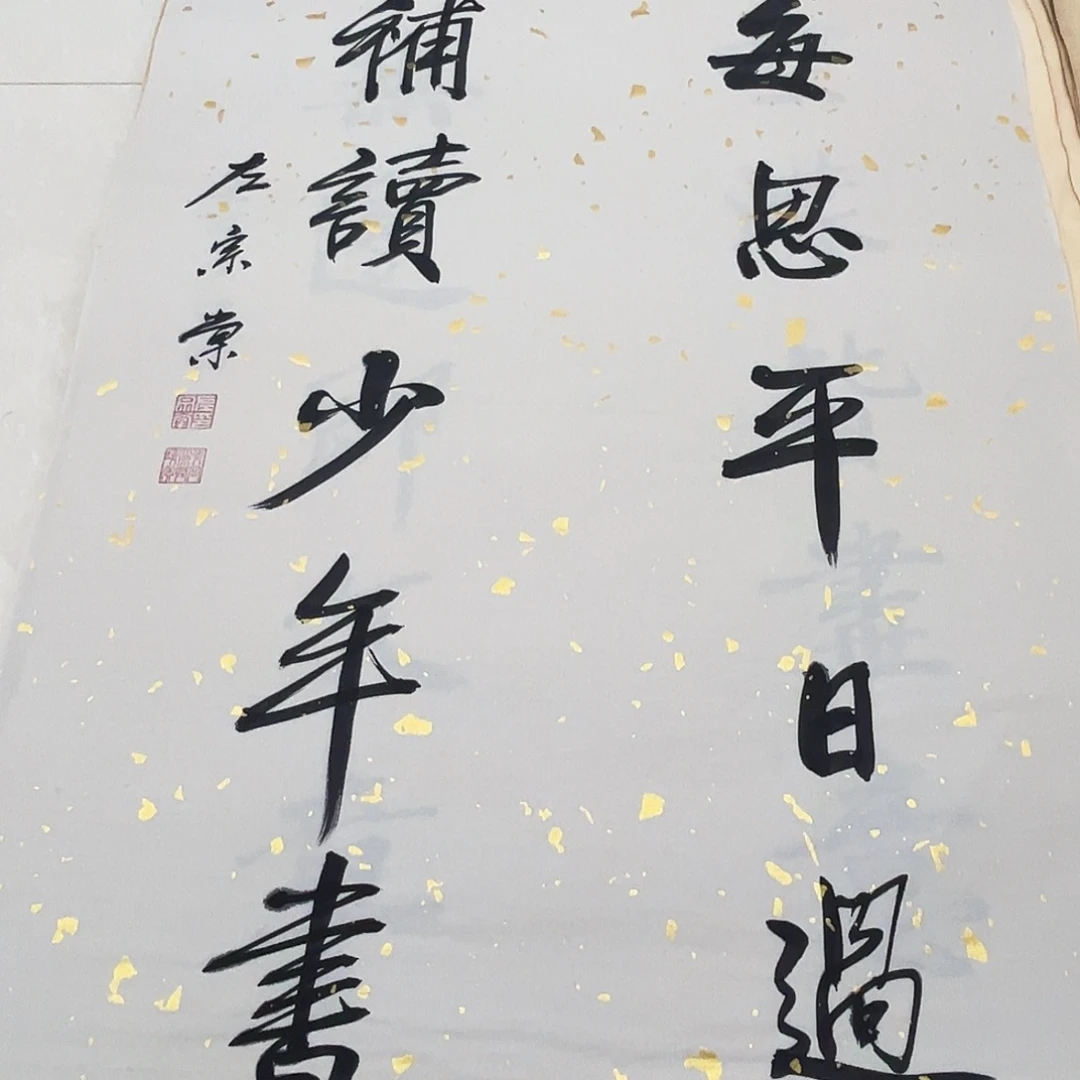 每思平日過
補讀少年書
左宗棠